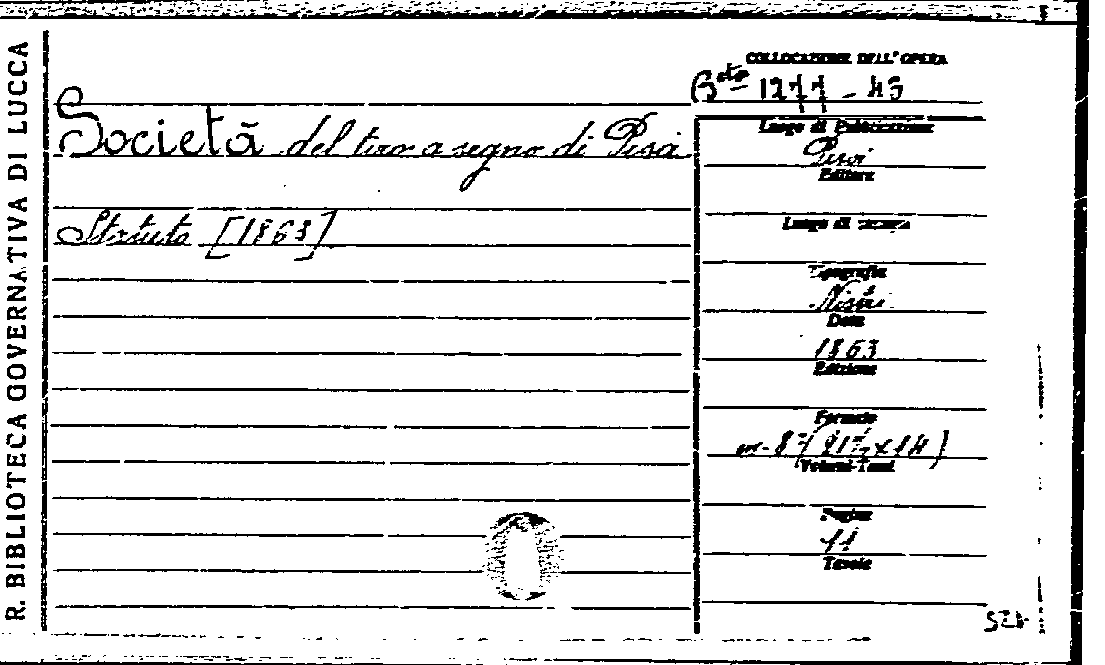 R. BIBLIOTECA GOVERNATIVA DI LUCCA
COLLOCAZIONE DELL'OPERA
Bta 1277 - 43
Società del tiro a segno di Pisa
Statuto [1863]
Luogo di Pubblicazione
Pisa
Editore
Luogo di stampa
Tipografia
Nistri
Data
1863
Edizione
Formato
in-8° (21½ x 14)
Volumi-Tomi
Pagine
11
Tavole